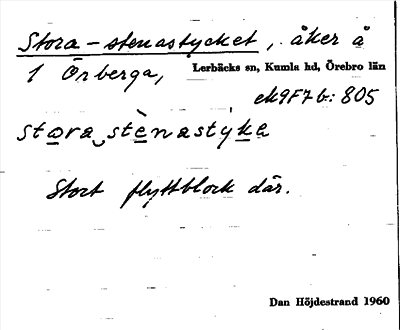 Stora-stenastycket, åker å
1 Örberga, Lerbäcks sn, Kumla hd, Örebro län
ek 9F7b: 805
stora stènastyka
Stort flyttblock där.
Dan Höjdestrand 1960